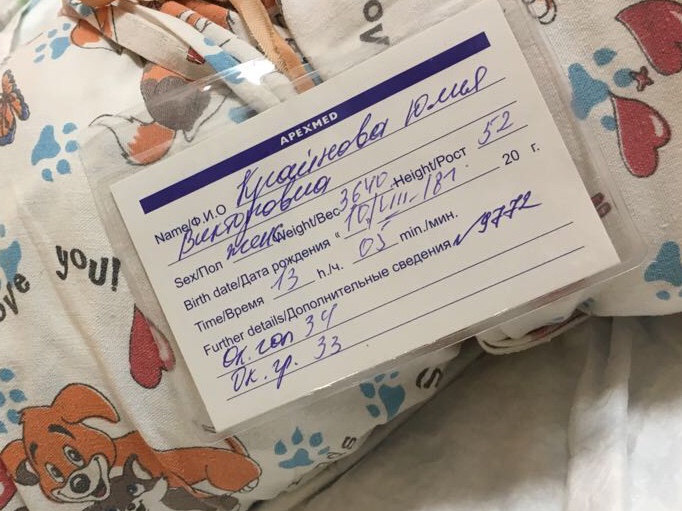 APEXMED
Name/Ф.И.О Крайнова Юлия
Викторовна
Sex/Пол жен Weight/Вес 3640 Height/Рост 52
Birth date/Дата рождения " 10/VIII-18г. 20 г.
Time/Время 13 h./ч. 05 min./мин.
Further details/Дополнительные сведения №9772
Ок. гол 34
Ок. гр. 33
you!
ove